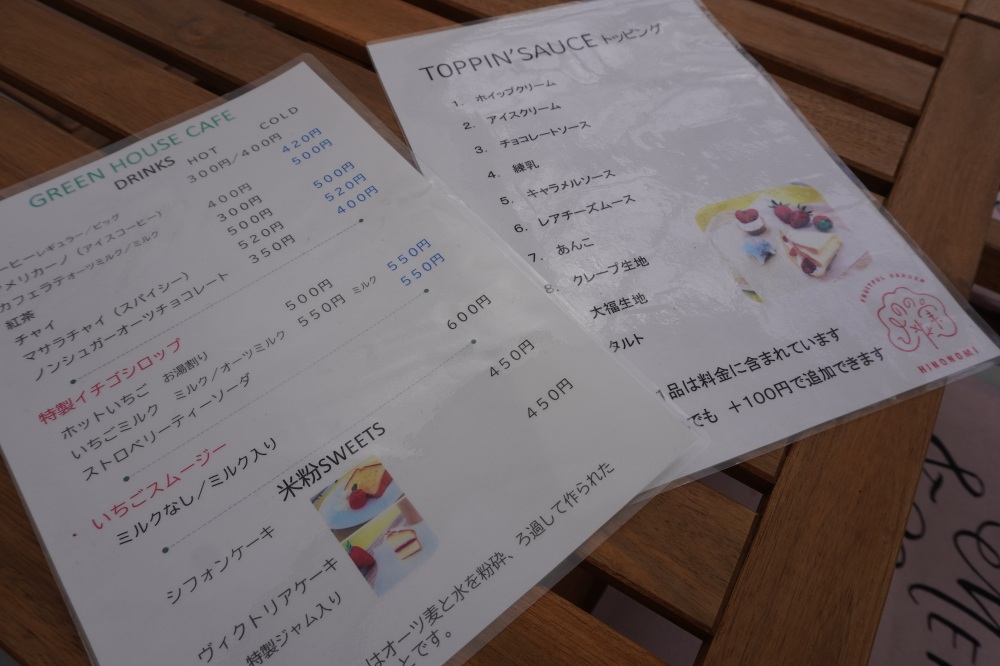 GREEN HOUSE CAFE
DRINKS HOT COLD
ーヒーレギュラー／ビッグ 300円／400円
メリカーノ（アイスコーヒー） 400円 420円
カフェラテオーツミルク／ミルク 300円 500円
紅茶 500円 500円
チャイ 520円 520円
マサラチャイ（スパイシー） 350円 400円
ノンシュガーオーツチョコレート
特製イチゴシロップ
ホットいちご お湯割り 500円
いちごミルク ミルク／オーツミルク 550円 ミルク 550円
ストロベリーティーソーダ 550円
・いちごスムージー 600円
ミルクなし／ミルク入り
米粉SWEETS
シフォンケーキ 450円
ヴィクトリアケーキ 450円
特製ジャム入り
はオーツ麦と水を粉砕、ろ過して作られた
とです。
TOPPIN'SAUCE トッピング
1. ホイップクリーム
2. アイスクリーム
3. チョコレートソース
4. 練乳
5. キャラメルソース
6. レアチーズムース
7. あんこ
8. クレープ生地
大福生地
タルト
1品は料金に含まれています
でも ＋100円で追加できます
FRUITFUL GARDEN
HINONOMI